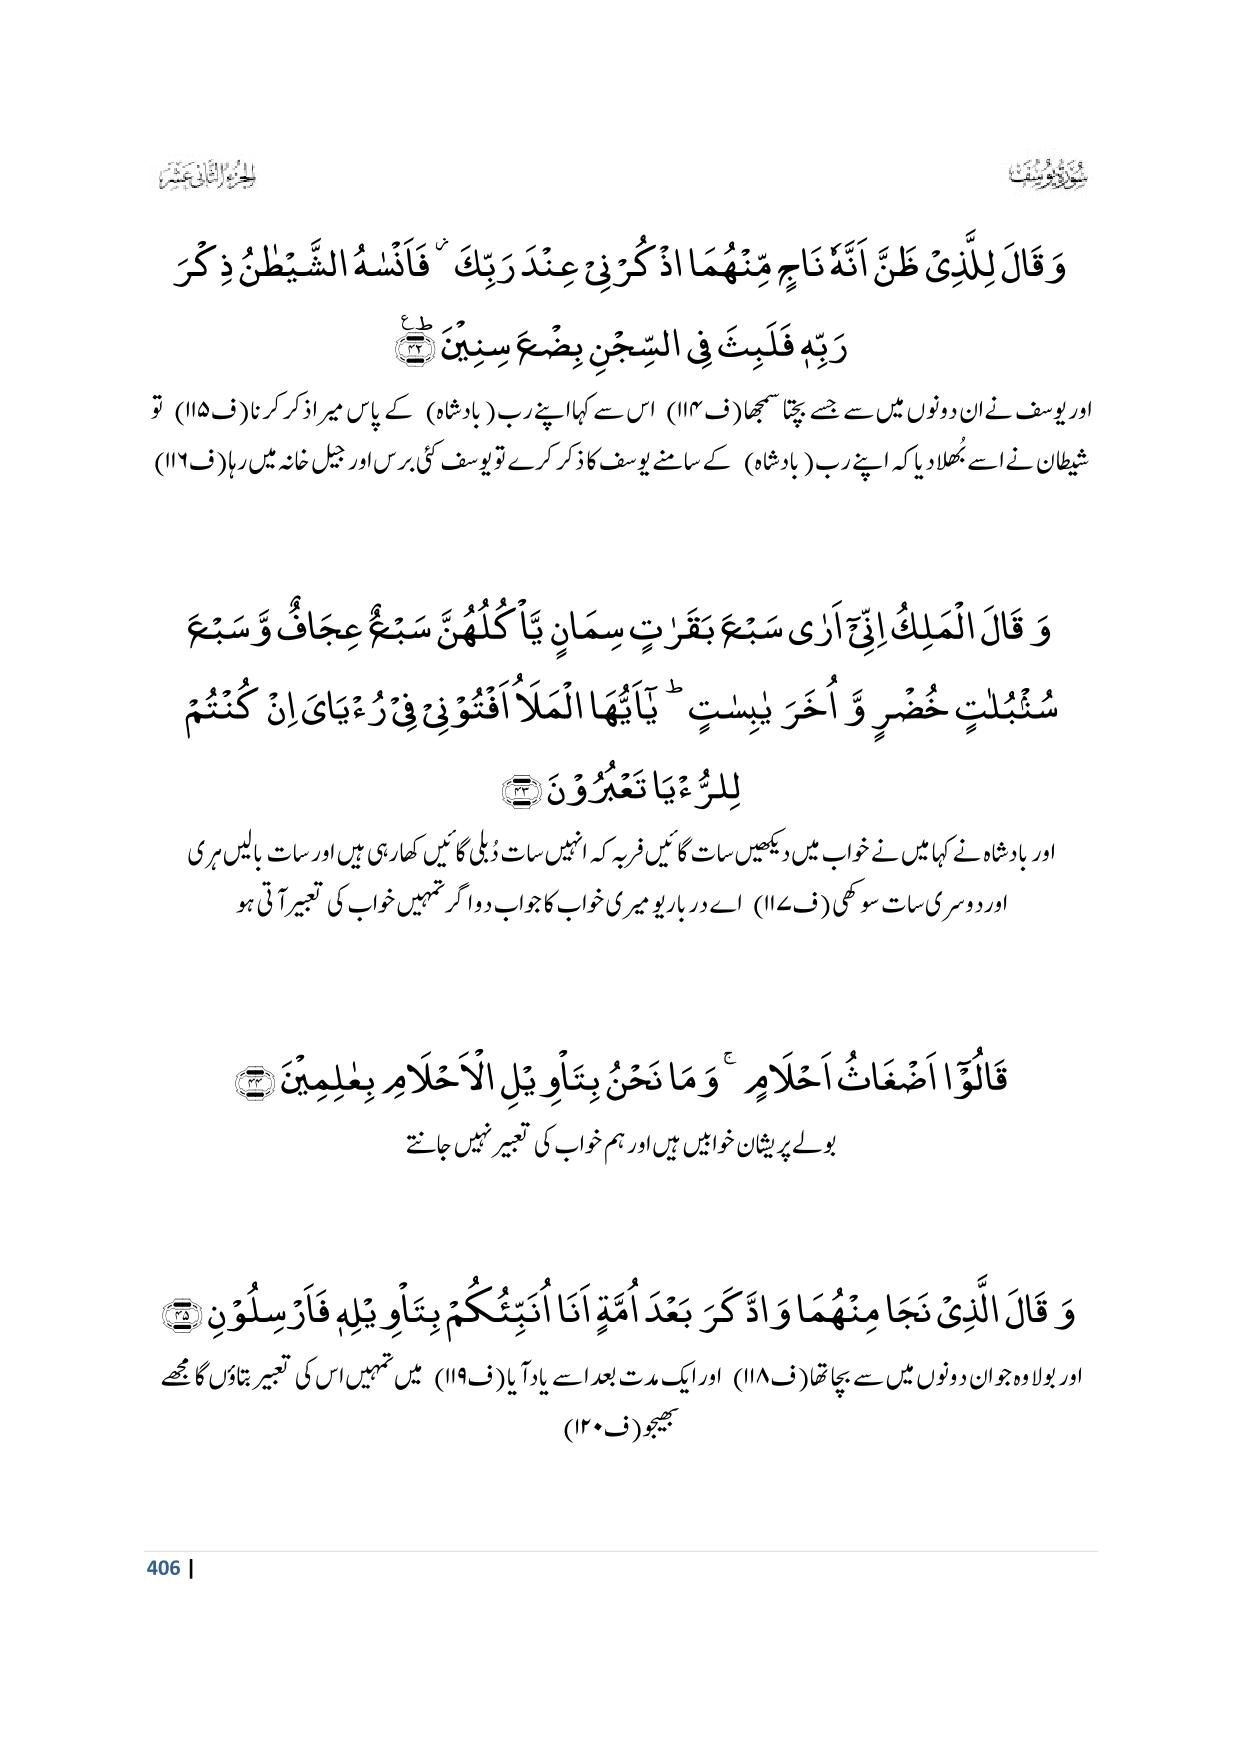 سُوۡرَۃُ یُوۡسُفَ
الجزء الثانی عشر
وَ قَالَ لِلَّذِیۡ ظَنَّ اَنَّہٗ نَاجٍ مِّنۡہُمَا اذۡکُرۡنِیۡ عِنۡدَ رَبِّکَ ۫ فَاَنۡسٰہُ الشَّیۡطٰنُ ذِکۡرَ
رَبِّہٖ فَلَبِثَ فِی السِّجۡنِ بِضۡعَ سِنِیۡنَ ﴿ؕ۴۲﴾
اور یوسف نے ان دونوں میں سے جسے بچتا سمجھا(ف۱۱۴) اس سے کہا اپنے رب( بادشاہ) کے پاس میرا ذکر کرنا(ف۱۱۵) تو
شیطان نے اسے بُھلا دیا کہ اپنے رب( بادشاہ) کے سامنے یوسف کا ذکر کرے تو یوسف کئی برس اور جیل خانہ میں رہا(ف۱۱۶)
وَ قَالَ الۡمَلِکُ اِنِّیۡۤ اَرٰی سَبۡعَ بَقَرٰتٍ سِمَانٍ یَّاۡکُلُہُنَّ سَبۡعٌ عِجَافٌ وَّ سَبۡعَ
سُنۡۢبُلٰتٍ خُضۡرٍ وَّ اُخَرَ یٰبِسٰتٍ ؕ یٰۤاَیُّہَا الۡمَلَاُ اَفۡتُوۡنِیۡ فِیۡ رُءۡیَایَ اِنۡ کُنۡتُمۡ
لِلرُّءۡیَا تَعۡبُرُوۡنَ ﴿۴۳﴾
اور بادشاہ نے کہا میں نے خواب میں دیکھیں سات گائیں فربہ کہ انہیں سات دُبلی گائیں کھا رہی ہیں اور سات بالیں ہری
اور دوسری سات سوکھی(ف۱۱۷) اے درباریو میری خواب کا جواب دو اگر تمہیں خواب کی تعبیر آتی ہو
قَالُوۡۤا اَضۡغَاثُ اَحۡلَامٍ ۚ وَ مَا نَحۡنُ بِتَاۡوِیۡلِ الۡاَحۡلَامِ بِعٰلِمِیۡنَ ﴿۴۴﴾
بولے پریشان خوابیں ہیں اور ہم خواب کی تعبیر نہیں جانتے
وَ قَالَ الَّذِیۡ نَجَا مِنۡہُمَا وَ ادَّکَرَ بَعۡدَ اُمَّۃٍ اَنَا اُنَبِّئُکُمۡ بِتَاۡوِیۡلِہٖ فَاَرۡسِلُوۡنِ ﴿۴۵﴾
اور بولا وہ جو ان دونوں میں سے بچا تھا(ف۱۱۸) اور ایک مدت بعد اسے یاد آیا(ف۱۱۹) میں تمہیں اس کی تعبیر بتاؤں گا مجھے
بھیجو(ف۱۲۰)
406 |